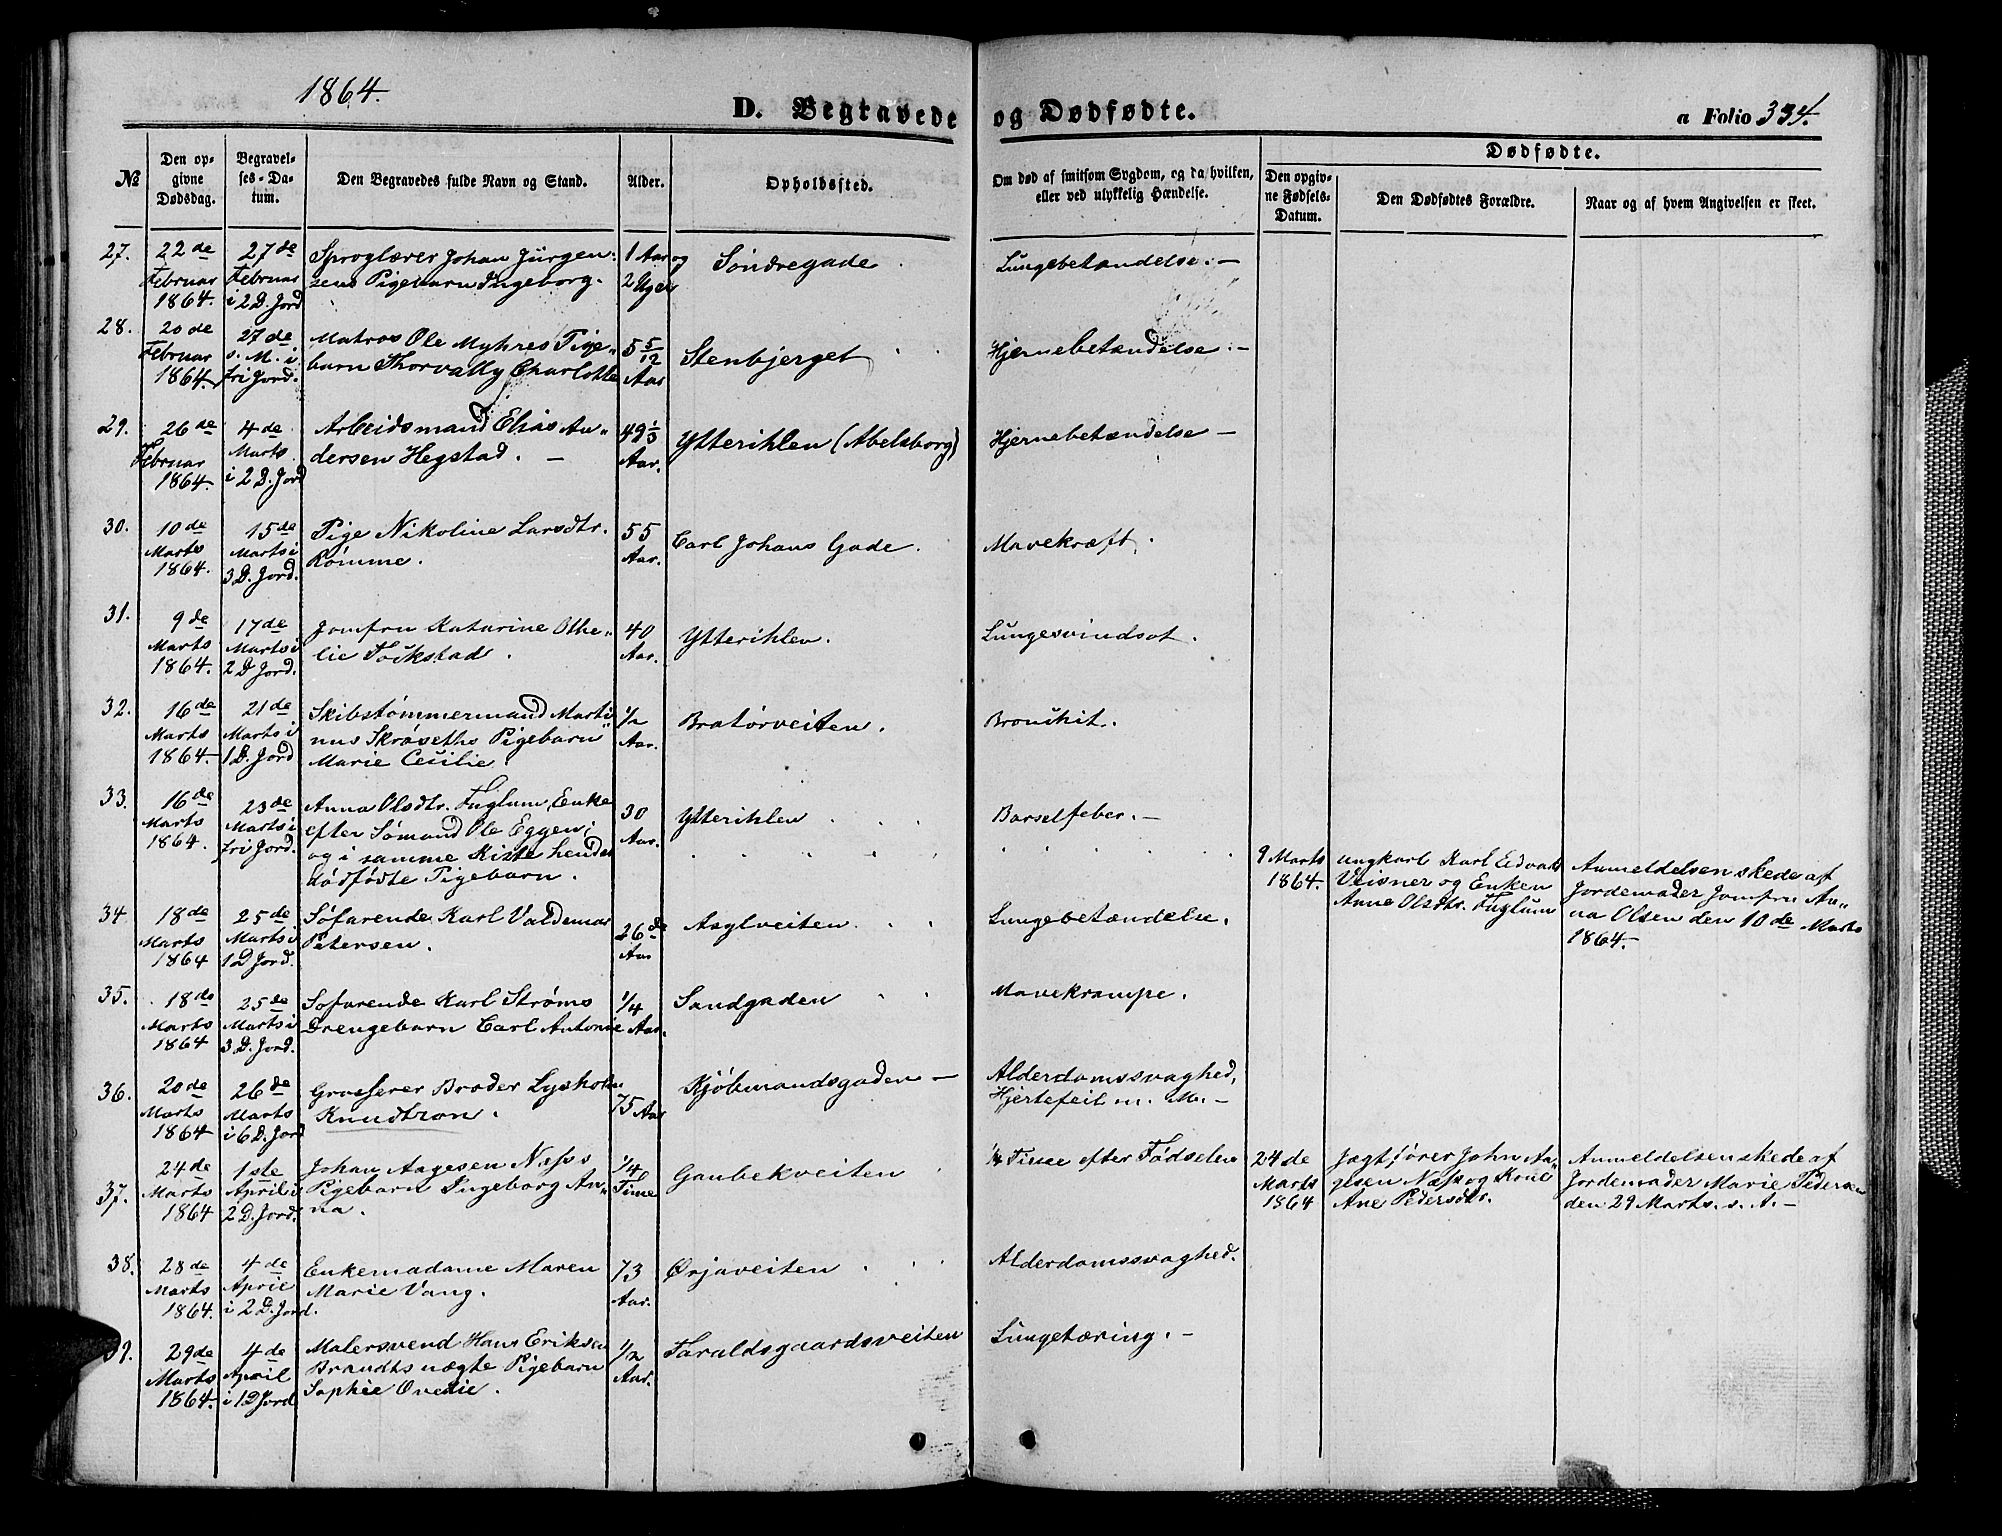 1864.
D. Begravede og Dødfødte.
a Folio 334.
№
Den opgivne Dødsdag.
Begravelses-Datum.
Den Begravedes fulde Navn og Stand.
Alder.
Opholdssted.
Om død af smitsom Sygdom, og da hvilken, eller ved ulykkelig Hændelse.
Dødfødte.
Den opgivne Fødsels-Datum.
Den Dødfødtes Forældre.
Naar og af hvem Angivelsen er skeet.
27.
22de Februar 1864.
27de Februar i 2 D. Jord
Sproglærer Johan Jürgen-
sens Pigebarn Ingeborg.
1 Aar og 2 Uger
Søndregade
Lungebetændelse. —
28.
20de Februar 1864.
27de s. M. i fri Jord.
Matros Ole Myhres Pige-
barn Thorvally Charlotte
5 5/12 Aar
Stenbjerget
Hjernebetændelse. —
29.
26de Februar 1864.
4de Marts i 2 D. Jord
Arbeidsmand Elias An-
dersen Hegstad. —
49 1/3 Aar.
Ytterihlen (Abelsborg)
Hjernebetændelse —
30.
10de Marts 1864.
15de Marts i 3 D. Jord.
Pige Nikoline Larsdtr.
Rømme.
55 Aar.
Carl Johans Gade.
Mavekræft.
31.
9de Marts 1864.
17de Marts i 2 D Jord.
Jomfru Katarine Othe-
lie Fockstad.
40 Aar.
Ytterihlen.
Lungesvindsot.
32.
16de Marts 1864.
21de Marts i 1 D. Jord
Skibstømmermand Marti-
nus Skrøseths Pigebarn
Marie Cecilie.
1/2 Aar.
Bratørveiten.
Bronchit.
33.
16de Marts 1864.
23de Marts i fri Jord.
Anna Olsdtr. Fuglum, Enke
efter Sømand Ole Eggen;
og i samme Kiste hendes
dødfødte Pigebarn.
30 Aar.
Ytterihlen
Barselfeber. —
9 Marts 1864.
ungkarl Karl Edvard
Veisner og Enken
Anne Olsdtr. Fuglum
Anmeldelsen skede af
Jordemoder Jomfru An-
na Olsen den 10de Marts
1864. —
34
18de Marts 1864
25de Marts i 1 D Jord.
Søfarende Karl Valdemar
Petersen.
26de Aar
Asylveiten.
Lungebetændelse.
35.
18de Marts 1864
25de Marts i 3 D. Jord.
Søfarende Karl Strøms
Drengebarn Carl Antonie
1/4 Aar.
Sandgaden
Mavekrampe.
36.
20de Marts 1864
26de Marts i 6 D. Jord
Grosserer Broder Lysholm
Knudtzon.
75 Aar
Kjøbmandsgaden —
Alderdomssvaghed,
Hjertefeil m. M. —
37.
24de Marts 1864
1ste April i 2 D. Jord.
Johan Aagesen Næss
Pigebarn Ingeborg An-
na.
1/4 Time
Gaubekveiten
1/4 Time efter Fødselen
24de Marts 1864
Jægtfører John Aa-
gesen Næss og Kone
Ane Pedersdtr.
Anmeldelsen skede af
Jordemoder Marie Pedersen
den 29 Marts. s. A. —
38.
28de Marts 1864.
4de April i 2 D. Jord.
Enkemadame Maren
Marie Vang.
73 Aar.
Ørjaveiten
Alderdomssvaghed.
39.
29de Marts 1864.
4de April i 1 D Jord
Malersvend Hans Eriksen
Brandts uægte Pigebarn
Sophie Ovedie.
1/2 Aar.
Taraldsgaardsveiten
Lungetæring. —